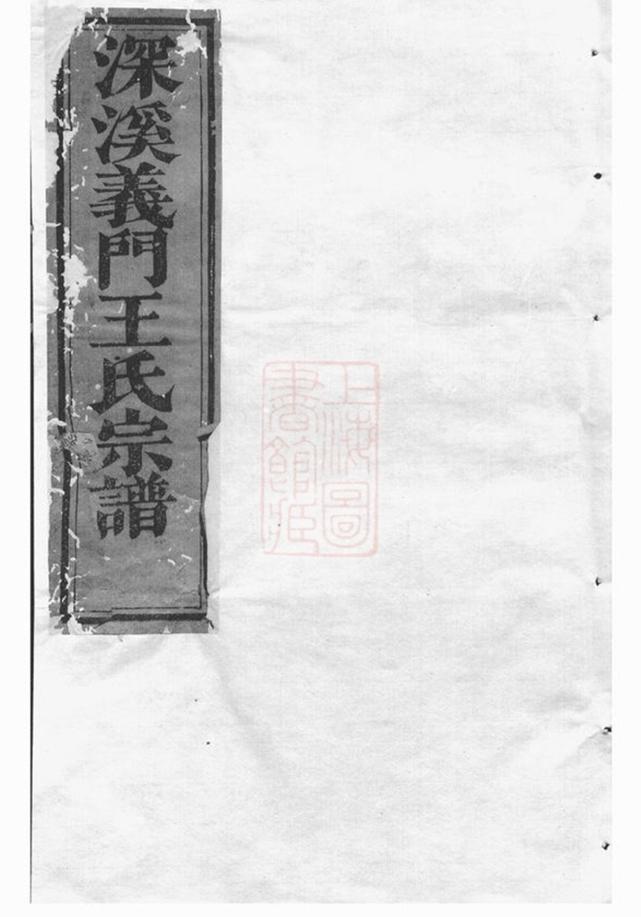 深溪義門王氏宗譜
上海圖
書館藏